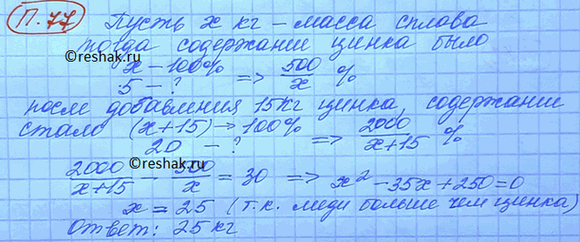 П.77 Пусть x кг – масса сплава
©reshak.ru тогда содержание цинка было
x – 100%
5 – ? => 500/x %
после добавления 15кг цинка, содержание
стало (x+15) → 100%
20 – ? => 2000/(x+15) %
©reshak.ru
2000/(x+15) – 500/x = 30 => x² – 35x + 250 = 0
x = 25 (т.к. меди больше чем цинка)
Ответ: 25 кг